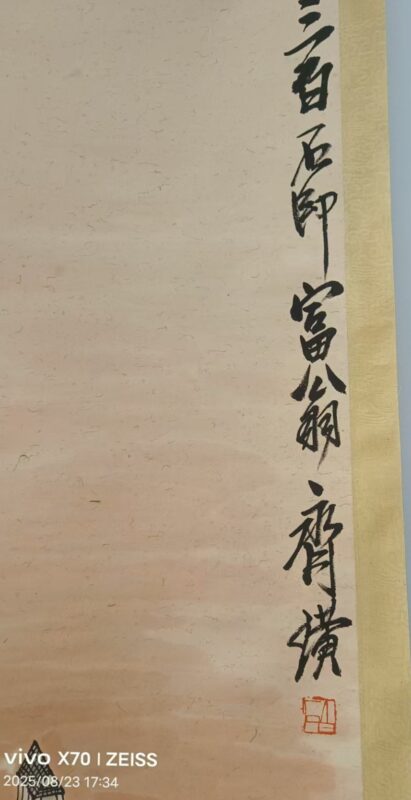 三百石印富翁齊璜
vivo X70 | ZEISS
2025/08/23 17:34